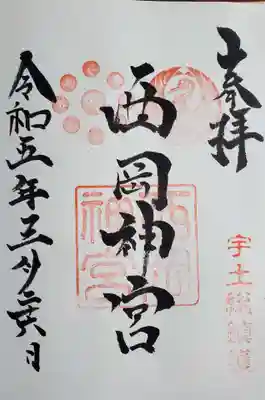 奉拝
宇土総鎮護
西岡神宮
西岡神宮
令和五年三月二六日